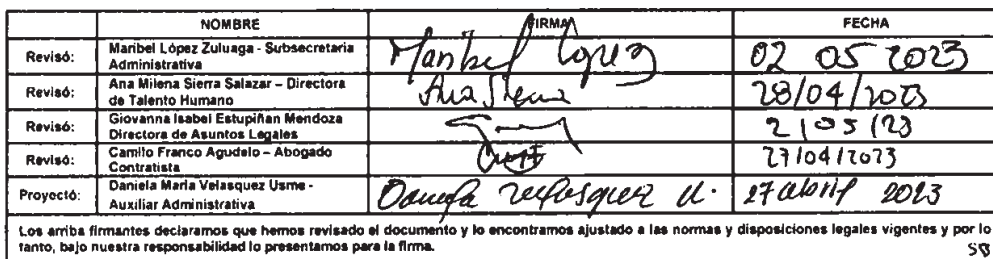 NOMBRE FIRMA FECHA
Revisó: Maribel López Zuluaga - Subsecretaria Administrativa Maribel López 02 05 2023
Revisó: Ana Milena Sierra Salazar – Directora de Talento Humano Ana Sierra 28/04/2023
Revisó: Giovanna Isabel Estupiñan Mendoza Directora de Asuntos Legales 2/05/23
Revisó: Camilo Franco Agudelo – Abogado Contratista 27/04/2023
Proyectó: Daniela María Velasquez Usme - Auxiliar Administrativa Daniela Velasquez U. 27 abril 2023
Los arriba firmantes declaramos que hemos revisado el documento y lo encontramos ajustado a las normas y disposiciones legales vigentes y por lo
tanto, bajo nuestra responsabilidad lo presentamos para la firma.